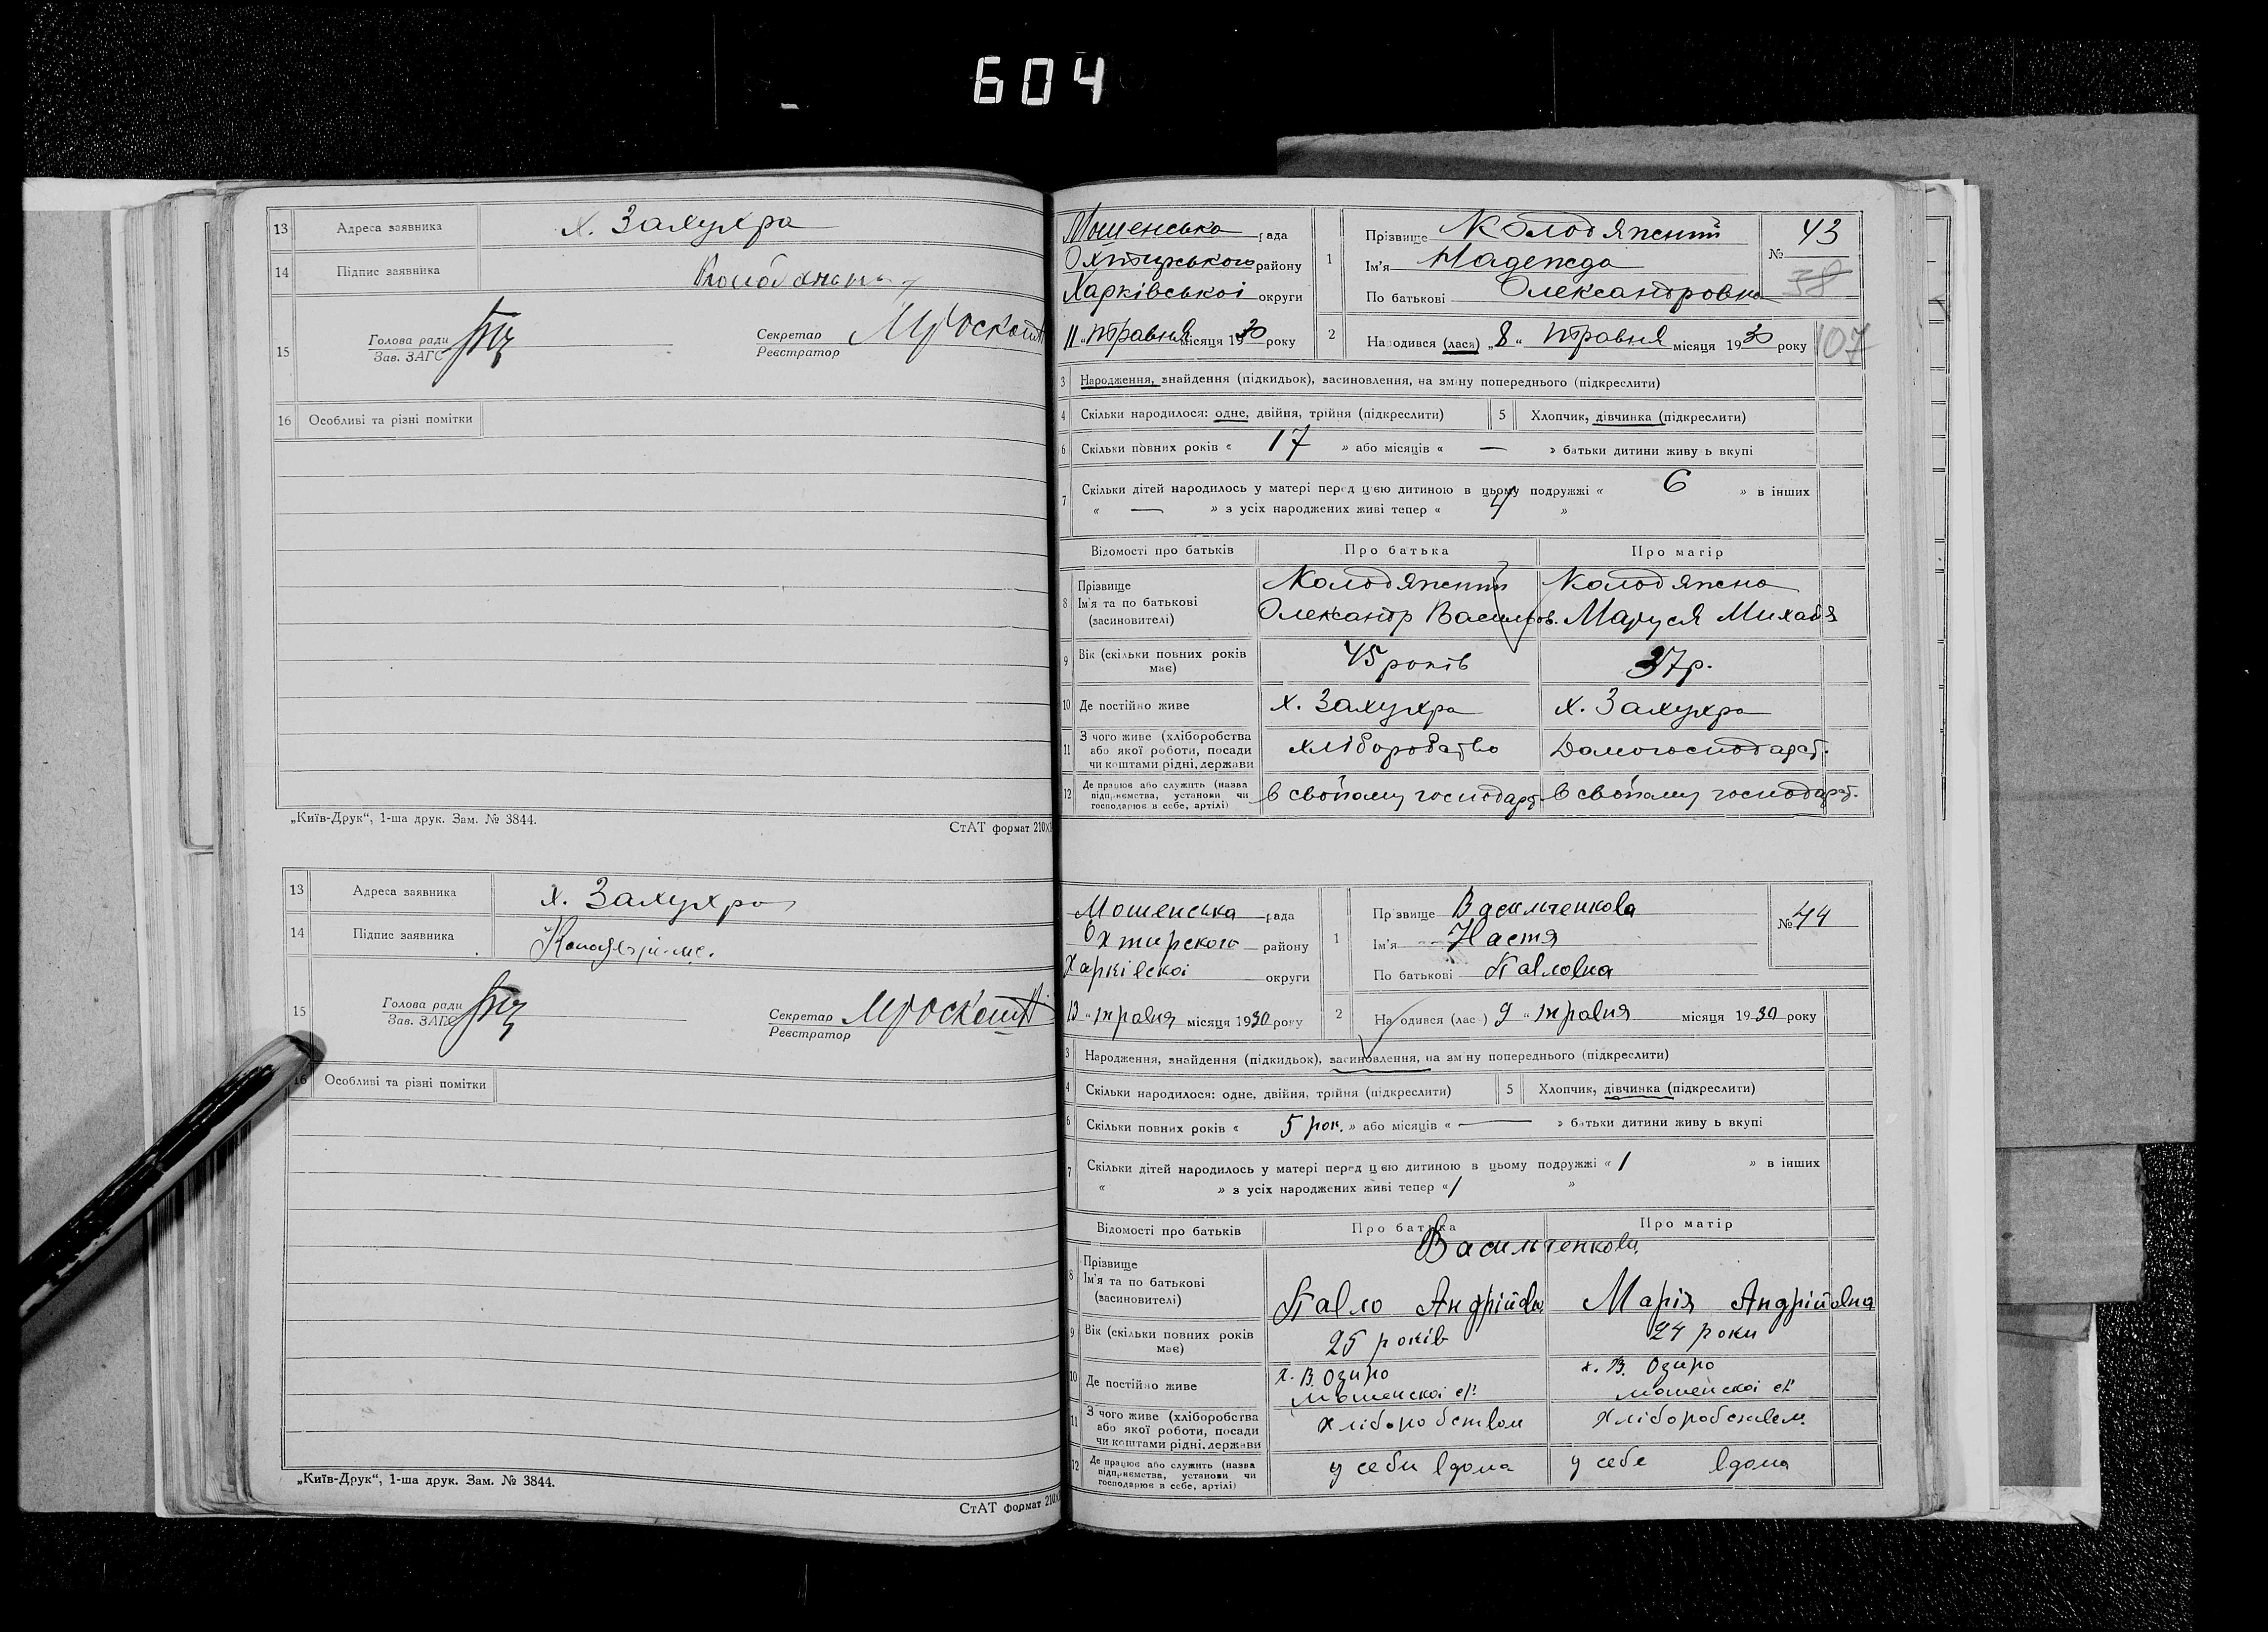 604
13 Адреса заявника х. Захухра
14 Підпис заявника
15 Голова ради
Зав. ЗАГС
Секретар
Реєстратор
16 Особливі та різні помітки
„Київ-Друк“, 1-ша друк. Зам. № 3844.
СтАТ формат 210х
13 Адреса заявника х. Захухра
14 Підпис заявника
15 Голова ради
Зав. ЗАГС
Секретар
Реєстратор
16 Особливі та різні помітки
„Київ-Друк“, 1-ша друк. Зам. № 3844.
СтАТ формат 210х
Мошенська рада
Охтирського району
Харківської округи
11 „ травня місяця 1930 року
1 Прізвище Колодяжний
Ім'я Надежда
По батькові Олександровна
№ 43
38
107
2 Народився (лася) „8“ травня місяця 1930 року
3 Народження, знайдення (підкидьок), засиновлення, на зміну попереднього (підкреслити)
4 Скільки народилося: одне, двійня, трійня (підкреслити) 5 Хлопчик, дівчинка (підкреслити)
6 Скільки повних років « 17 » або місяців « — » батьки дитини живу ь вкупі
7 Скільки дітей народилось у матері перед цією дитиною в цьому подружжі « 6 » в інших
« — » з усіх народжених живі тепер « 4 »
Відомості про батьків Про батька Про матір
8 Прізвище Колодяжний Колодяжна
Ім'я та по батькові Олександр Васильов. Маруся Михай
(засиновителі)
9 Вік (скільки повних років має) 45 років 37 р.
10 Де постійно живе х. Захухра х. Захухра
11 З чого живе (хліборобства хліборобство Домогосподарст.
або якої роботи, посади
чи коштами рідні, держави
12 Де працює або служить (назва
підприємства, установи чи в свойому господарст в свойому господарст.
господарює в себе, артілі)
Мошенська рада
Охтирского району
Харківскоі округи
13 „ травня місяця 1930 року
1 Прізвище Васильченкова
Ім'я Настя
По батькові Павловна
№ 44
2 Народився (лас ) 9 „ травня місяця 1930 року
3 Народження, знайдення (підкидьок), засиновлення, на зміну попереднього (підкреслити)
4 Скільки народилося: одне, двійня, трійня (підкреслити) 5 Хлопчик, дівчинка (підкреслити)
6 Скільки повних років « 5 рок. » або місяців « — » батьки дитини живу ь вкупі
7 Скільки дітей народилось у матері перед цією дитиною в цьому подружжі « 1 » в інших
« » з усіх народжених живі тепер « 1 »
Відомості про батьків Про батька Про матір
Васильченкови
8 Прізвище
Ім'я та по батькові
(засиновителі) Павло Андрійов Марія Андрійовна
9 Вік (скільки повних років має) 25 років 24 роки
10 Де постійно живе х. В. Озиро х. В. Озиро
Мошенскоі с/р Мошенскоі с/р
11 З чого живе (хліборобства Хліборобством Хліборобством
або якої роботи, посади
чи коштами рідні, держави
12 Де працює або служить (назва у себи вдома у себе вдома
підприємства, установи чи
господарює в себе, артілі)